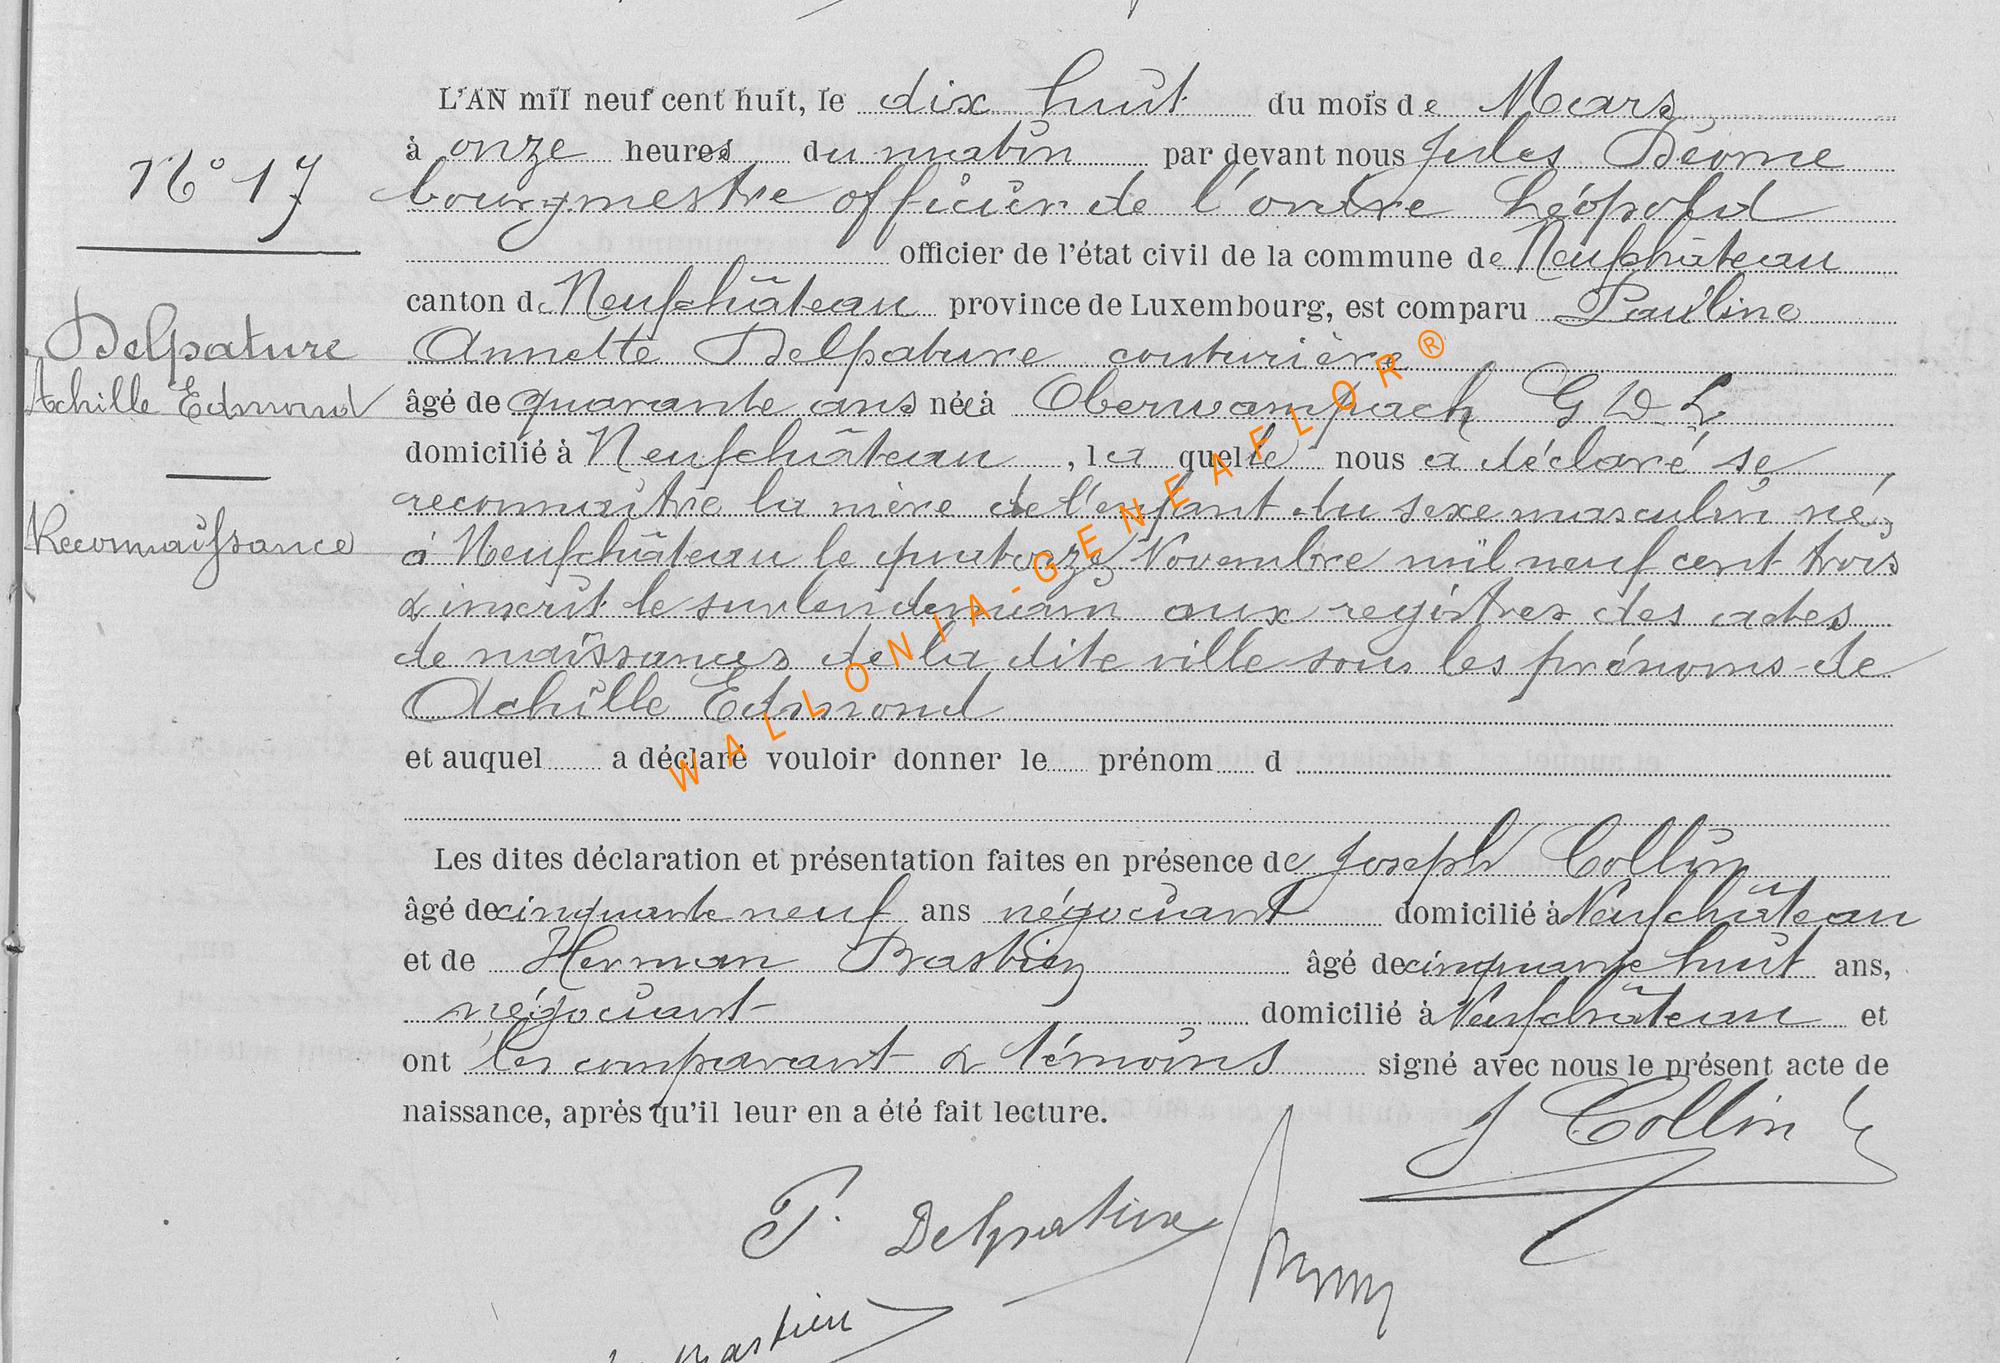 N° 17
Delpature
Achille Edmond
Reconnaissance
L'AN mil neuf cent huit, le dix huit du mois de Mars
à onze heures du matin par devant nous Jules
bourgmestre officier de l'ordre Léopold
officier de l'état civil de la commune de Neufchâteau
canton de Neufchâteau province de Luxembourg, est comparu Pauline
Annette Delpature couturière
âgé de quarante ans née à Oberwampach G D L
domicilié à Neufchâteau, la quelle nous a déclaré se
reconnaître la mère de l'enfant du sexe masculin né,
à Neufchâteau le quatorze Novembre mil neuf cent trois
& inscrit le surlendemain aux registres des actes
de naissances de la dite ville sous les prénoms de
Achille Edmond
et auquel a déclaré vouloir donner le prénom d
Les dites déclaration et présentation faites en présence de Joseph Collin
âgé de cinquante neuf ans négociant domicilié à Neufchâteau
et de Herman Bastien âgé de cinquante huit ans,
négociant domicilié à Neufchâteau et
ont les comparant & témoins signé avec nous le présent acte de
naissance, après qu'il leur en a été fait lecture.
J Collin
P. Delpature
Bastien
WALLONIA-GENEAFLOR®